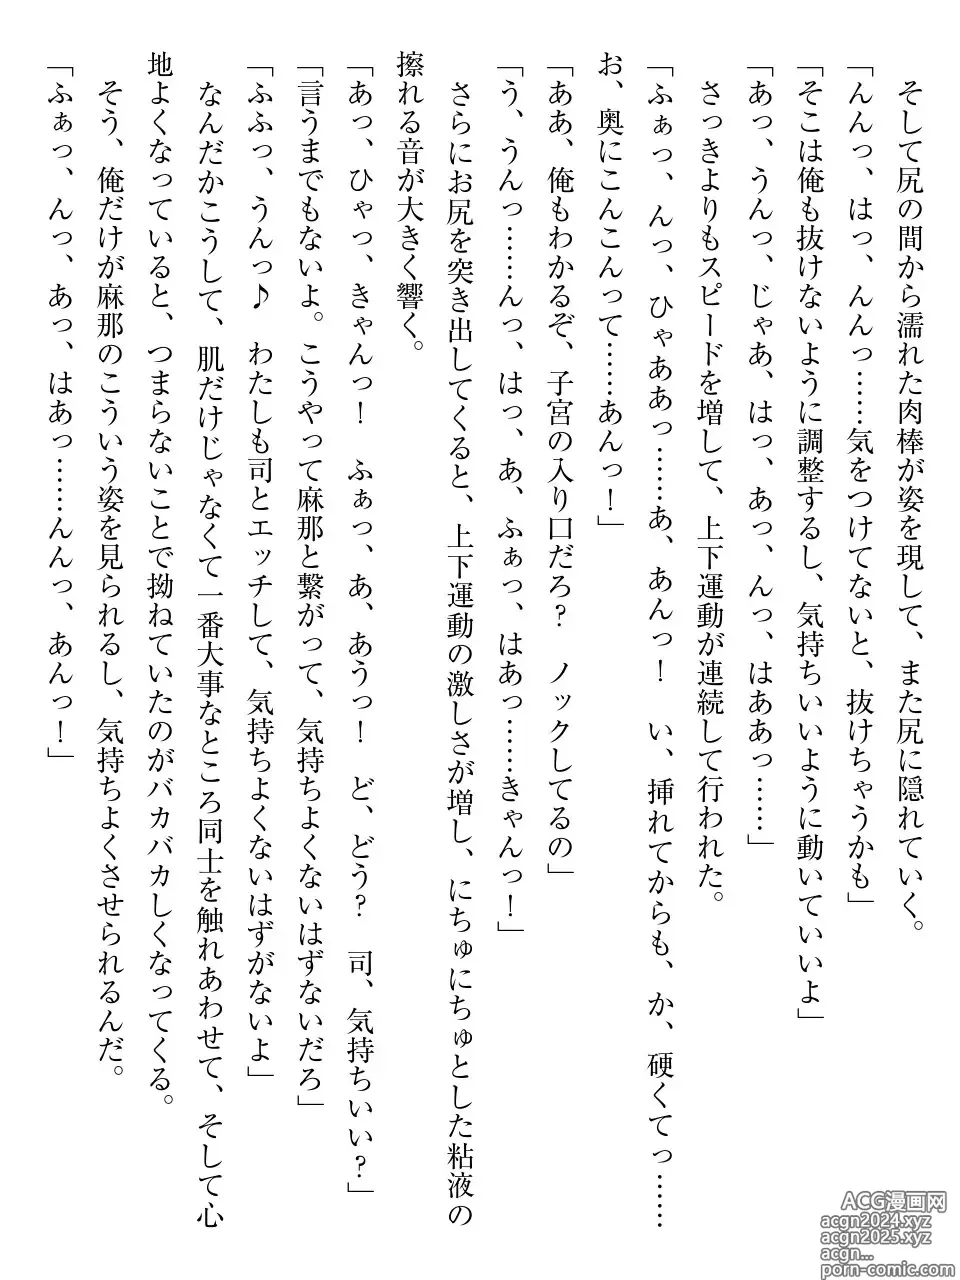 そして尻の間から濡れた肉棒が姿を現して、また尻に隠れていく。
「んんっ、はっ、んんっ……気をつけてないと、抜けちゃうかも」
「そこは俺も抜けないように調整するし、気持ちいいように動いていいよ」
「あっ、うんっ、じゃあ、はっ、あっ、んっ、はああっ……」
さっきよりもスピードを増して、上下運動が連続して行われた。
「ふぁっ、んっ、ひゃああっ……あ、あんっ！　い、挿れてからも、か、硬くてっ……
お、奥にこんこんって……あんっ！」
「ああ、俺もわかるぞ、子宮の入り口だろ？　ノックしてるの」
「う、うんっ……んっ、はっ、あ、ふぁっ、はあっ……きゃんっ！」
さらにお尻を突き出してくると、上下運動の激しさが増し、にちゅにちゅとした粘液の
擦れる音が大きく響く。
「あっ、ひゃっ、きゃんっ！　ふぁっ、あ、あうっ！　ど、どう？　司、気持ちいい？」
「言うまでもないよ。こうやって麻那と繋がって、気持ちよくないはずないだろ」
「ふふっ、うんっ♪　わたしも司とエッチして、気持ちよくないはずがないよ」
なんだかこうして、肌だけじゃなくて一番大事なところ同士を触れあわせて、そして心
地よくなっていると、つまらないことで拗ねていたのがバカバカしくなってくる。
そう、俺だけが麻那のこういう姿を見られるし、気持ちよくさせられるんだ。
「ふぁっ、んっ、あっ、はあっ……んんっ、あんっ！」
ACG漫画网
acgn2024.xyz
acgn2025.xyz
acgn...
porn-comic.com